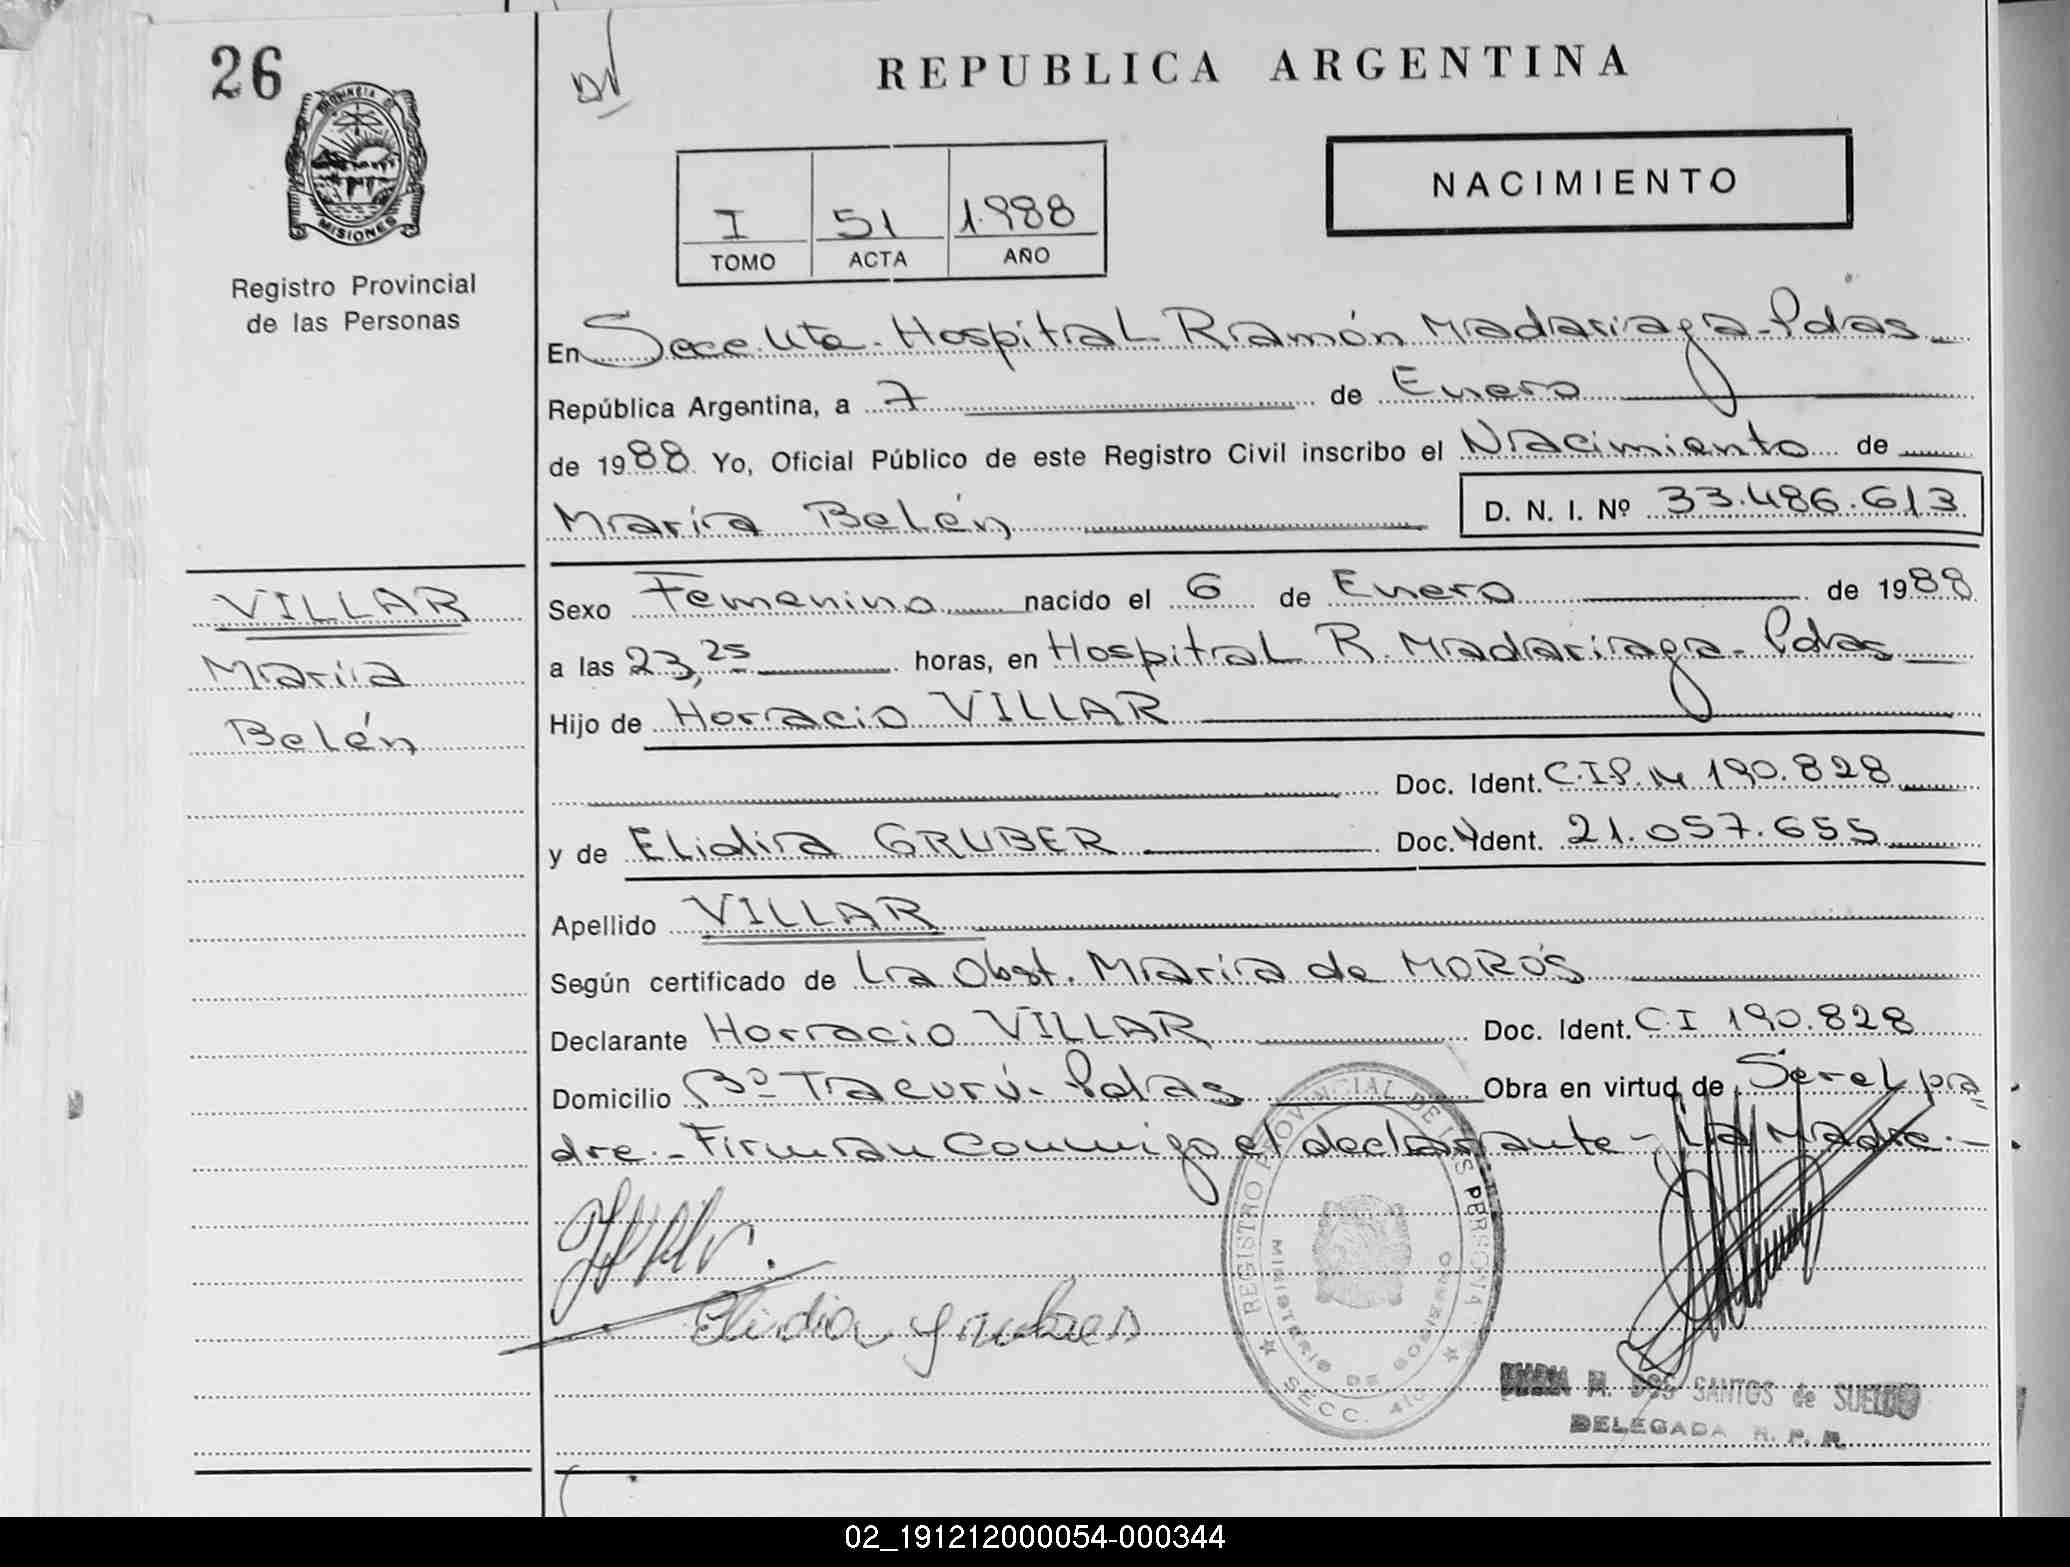 26
REPUBLICA ARGENTINA
PROVINCIA DE
MISIONES
I 51 1.988
TOMO ACTA AÑO
NACIMIENTO
Registro Provincial
de las Personas
En Secc. 4ta. Hospital Ramón Madariaga - Pdas
República Argentina, a 7 de Enero
de 1988 Yo, Oficial Público de este Registro Civil inscribo el Nacimiento de
María Belén D. N. I. Nº 33.486.613
VILLAR
María
Belén
Sexo Femenino nacido el 6 de Enero de 1988
a las 23,25 horas, en Hospital R. Madariaga - Pdas
Hijo de Horacio VILLAR
Doc. Ident. C.I.P.M 190.828
y de ELidia GRUBER Doc. Ident. 21.057.655
Apellido VILLAR
Según certificado de La Obst. María de MOROS
Declarante Horacio VILLAR Doc. Ident. C.I 190.828
Domicilio Bº Tacurú - Pdas Obra en virtud de Ser el pa-
dre.- Firman conmigo el declarante - La Madre.-
Elidia Gruber
REGISTRO PROVINCIAL DE LAS PERSONAS
MINISTERIO DE GOBIERNO
SECC. 4ta
M. DOS SANTOS de SUELDO
DELEGADA R. P. P.
02_191212000054-000344